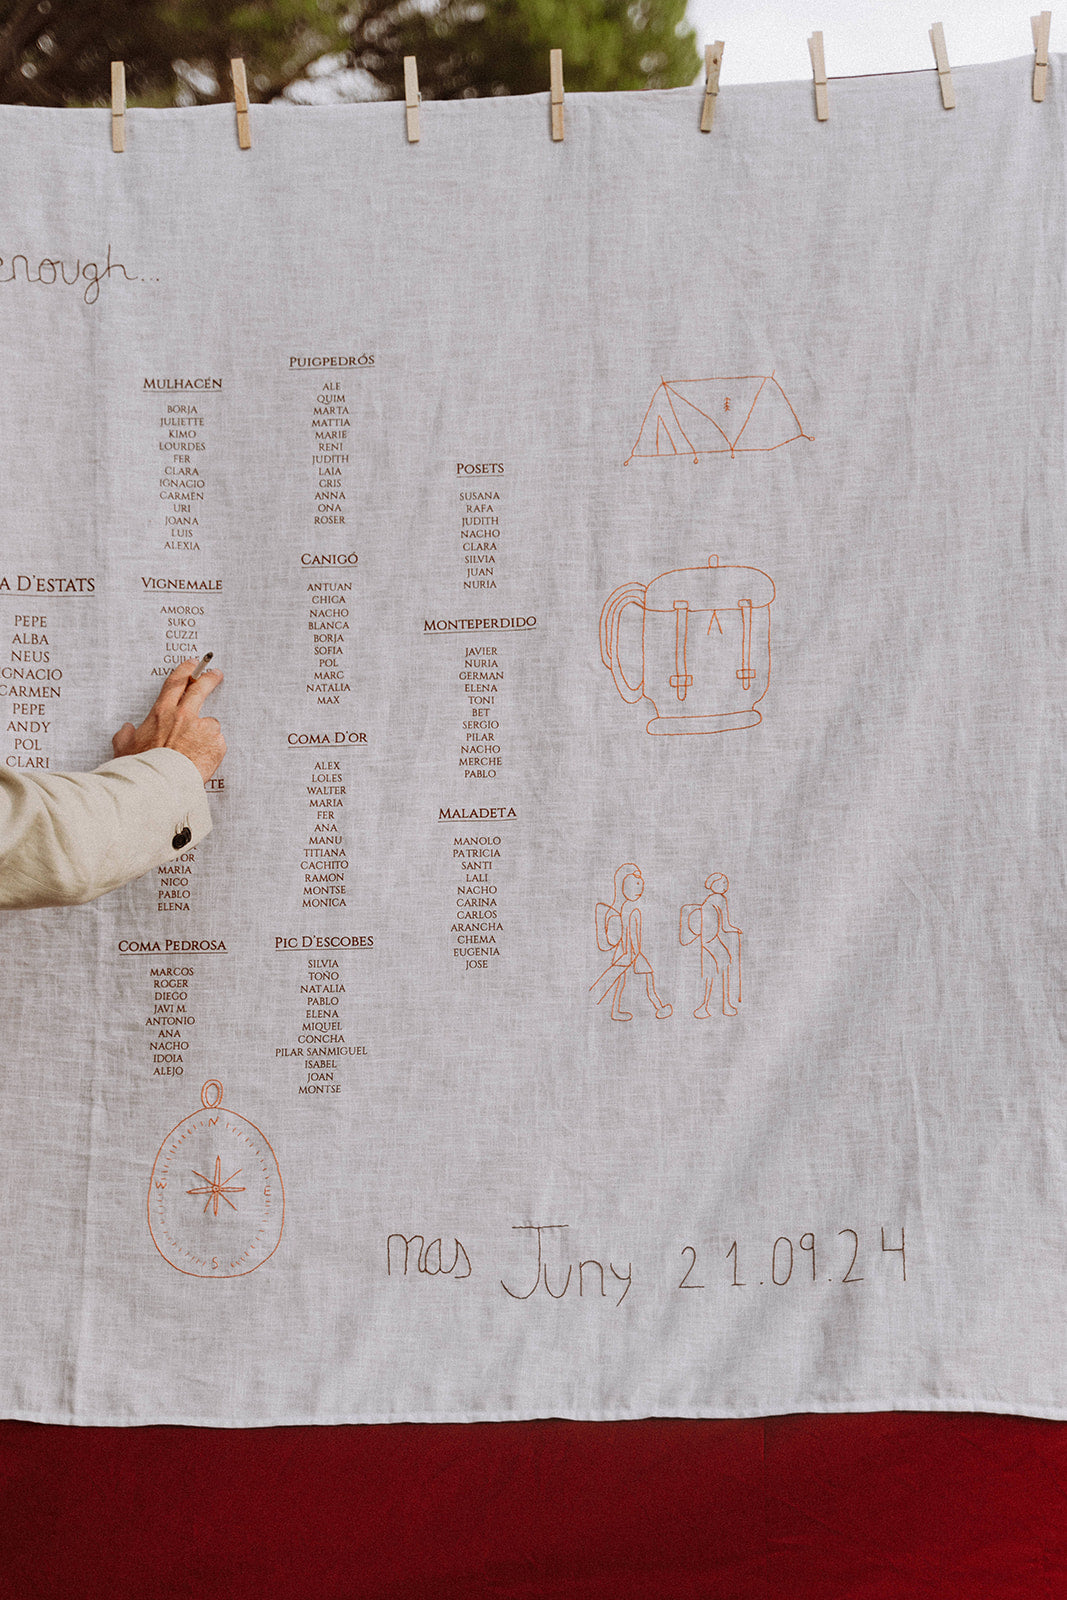 enough...
A D'ESTATS
PEPE
ALBA
NEUS
IGNACIO
CARMEN
PEPE
ANDY
POL
CLARI
MULHACÉN
BORJA
JULIETTE
KIMO
LOURDES
FER
CLARA
IGNACIO
CARMEN
URI
JOANA
LUIS
ALEXIA
VIGNEMALE
AMOROS
SUKO
CUZZI
LUCIA
MARIA
NICO
PABLO
ELENA
COMA PEDROSA
MARCOS
ROGER
DIEGO
JAVI M.
ANTONIO
ANA
NACHO
IDOIA
ALEJO
PUIGPEDRÓS
ALE
QUIM
MARTA
MATTIA
MARIE
RENI
JUDITH
LAIA
CRIS
ANNA
ONA
ROSER
CANIGÓ
ANTUAN
CHICA
NACHO
BLANCA
BORJA
SOFIA
POL
MARC
NATALIA
MAX
COMA D'OR
ALEX
LOLES
WALTER
MARIA
FER
ANA
MANU
TITIANA
CACHITO
RAMON
MONTSE
MONICA
PIC D'ESCOBES
SILVIA
TOÑO
NATALIA
PABLO
ELENA
MIQUEL
CONCHA
PILAR SANMIGUEL
ISABEL
JOAN
MONTSE
POSETS
SUSANA
RAFA
JUDITH
NACHO
CLARA
SILVIA
JUAN
NURIA
MONTEPERDIDO
JAVIER
NURIA
GERMAN
ELENA
TONI
BET
SERGIO
PILAR
NACHO
MERCHE
PABLO
MALADETA
MANOLO
PATRICIA
SANTI
LALI
NACHO
CARINA
CARLOS
ARANCHA
CHEMA
EUGENIA
JOSE
N
E
S
mas Juny 21.09.24